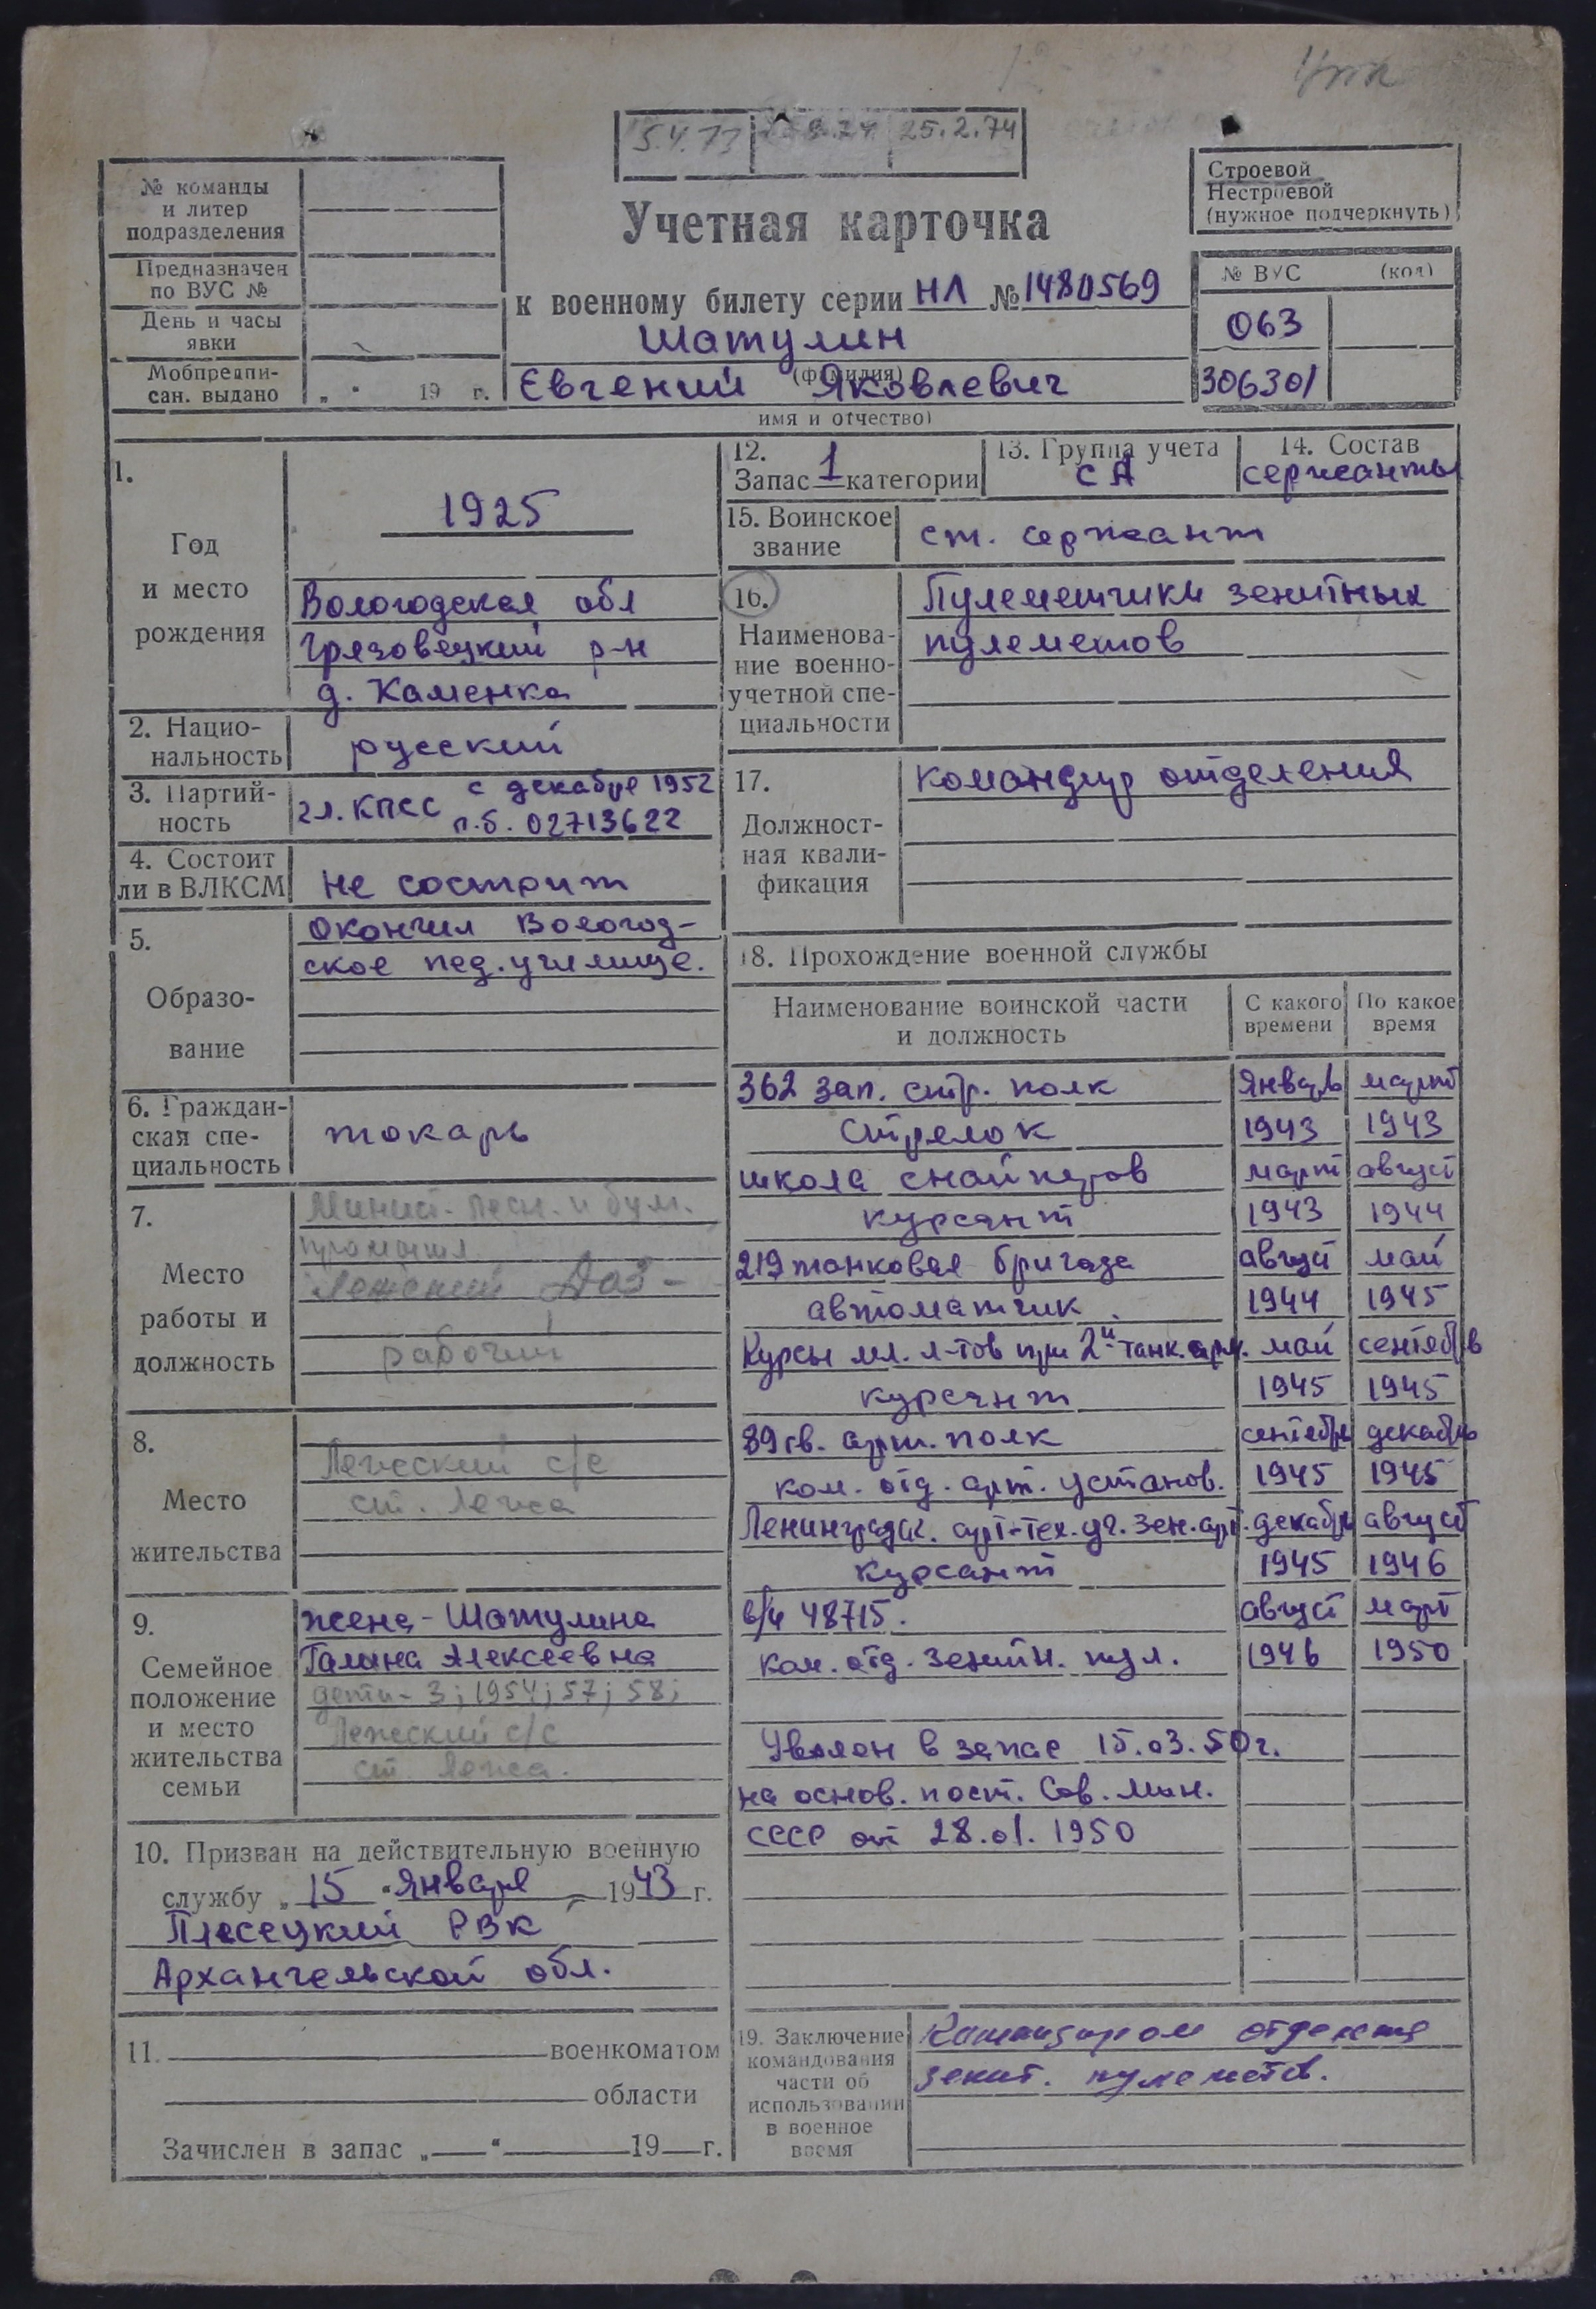 5.4.73
25.2.74
№ команды
и литер
подразделения
Предназначен
по ВУС №
День и часы
явки
Мобпредпи-
сан. выдано „ " 19 г.
Учетная карточка
к военному билету серии НЛ № 1480569
Шатулин
(фамилия)
Евгений Яковлевич
имя и отчество)
Строевой
Нестроевой
(нужное подчеркнуть)
№ ВУС (код)
063
306301
1.
Год
и место
рождения
1925
Вологодская обл
Грязовецкий р-н
д. Каменка
2. Нацио-
нальность
русский
3. Партий-
ность
чл. КПСС с декабря 1952
п.б. 02713622
4. Состоит
ли в ВЛКСМ
не состоит
5.
Образо-
вание
Окончил Вологод-
ское пед. училище.
6. Граждан-
ская спе-
циальность
токарь
7.
Место
работы и
должность
Минист. лесн. и бум.
Лежский ДОЗ -
рабочий
8.
Место
жительства
Лежский с/с
ст. Лежа
9.
Семейное
положение
и место
жительства
семьи
жена - Шатулина
Галина Алексеевна
дети - 3; 1954; 57; 58;
Лежский с/с
ст. Лежа.
10. Призван на действительную военную
службу „ 15 " января 1943 г.
Плесецкий РВК
Архангельской обл.
11. военкоматом
области
Зачислен в запас „ " 19 г.
12.
Запас 1 категории
13. Группа учета
СА
14. Состав
сержанты
15. Воинское
звание
ст. сержант
16.
Наименова-
ние военно-
учетной спе-
циальности
Пулеметчики зенитных
пулеметов
17.
Должност-
ная квали-
фикация
командир отделения
18. Прохождение военной службы
Наименование воинской части
и должность
С какого
времени
По какое
время
362 зап. стр. полк январь март
стрелок 1943 1943
школа снайперов март август
курсант 1943 1944
219 танковая бригада август май
автоматчик 1944 1945
Курсы мл. л-тов при 2й танк. арм. май сентябрь
курсант 1945 1945
89 гв. арт. полк сентябрь декабрь
ком. отд. арт. установ. 1945 1945
Ленинградск. арт-тех. уч. зен. арт. декабрь август
курсант 1945 1946
в/ч 48715. август март
ком. отд. зенитн. пул. 1946 1950
Уволен в запас 15.03.50г.
на основ. пост. Сов. Мин.
СССР от 28.01.1950
19. Заключение
командования
части об
использовании
в военное
время
Командиром отделения
зенит. пулеметов.